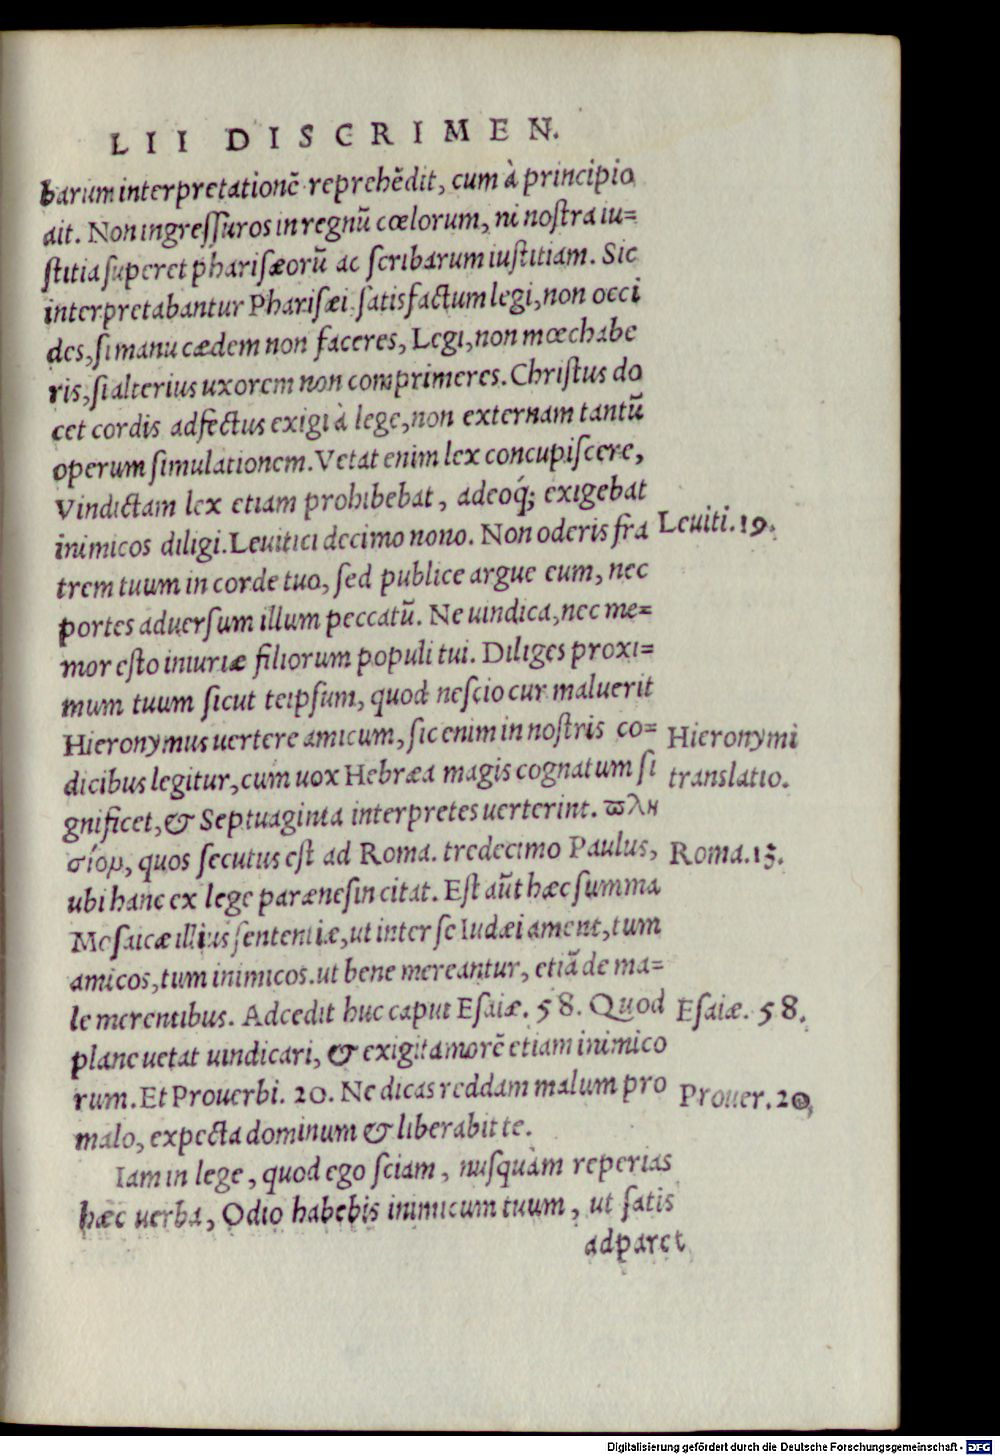 LII DISCRIMEN.
barum interpretationē reprehēdit, cum à principio
ait. Non ingreſſuros in regnū cœlorum, ni noſtra iu=
ſtitia ſuperet phariſæorū ac ſcribarum iuſtitiam. Sic
interpretabantur Phariſæi ſatisfactum legi, non occi
des, ſi manu cædem non faceres, Legi, non mœchabe
ris, ſi alterius uxorem non comprimeres. Chriſtus do
cet cordis adfectus exigi à lege, non externam tantū
operum ſimulationem. Vetat enim lex concupiſcere,
Vindictam lex etiam prohibebat, adeoq́; exigebat
inimicos diligi. Leuitici decimo nono. Non oderis fra
Leuiti. 19.
trem tuum in corde tuo, ſed publice argue eum, nec
portes aduerſum illum peccatū. Ne uindica, nec me=
mor eſto iniuriæ filiorum populi tui. Diliges proxi=
mum tuum ſicut teipſum, quod neſcio cur maluerit
Hieronymus uertere amicum, ſic enim in noſtris co=
Hieronymi
dicibus legitur, cum uox Hebræa magis cognatum ſi
translatio.
gnificet, & Septuaginta interpretes uerterint. ϖλη
σίομ, quos ſecutus eſt ad Roma. tredecimo Paulus,
Roma. 13.
ubi hanc ex lege parænesin citat. Eſt aūt hæc ſumma
Moſaicæ illius ſententiæ, ut inter ſe Iudæi ament, tum
amicos, tum inimicos. ut bene mereantur, etiā de ma=
le merentibus. Adcedit huc caput Eſaiæ. 58. Quod
Eſaiæ. 58.
plane uetat uindicari, & exigit amorē etiam inimico
rum. Et Prouerbi. 20. Ne dicas reddam malum pro
Prouer. 20,
malo, expecta dominum & liberabit te.
Iam in lege, quod ego ſciam, nuſquàm reperias
hæc uerba, Odio habebis inimicum tuum, ut ſatis
adparet
Digitalisierung gefördert durch die Deutsche Forschungsgemeinschaft - DFG